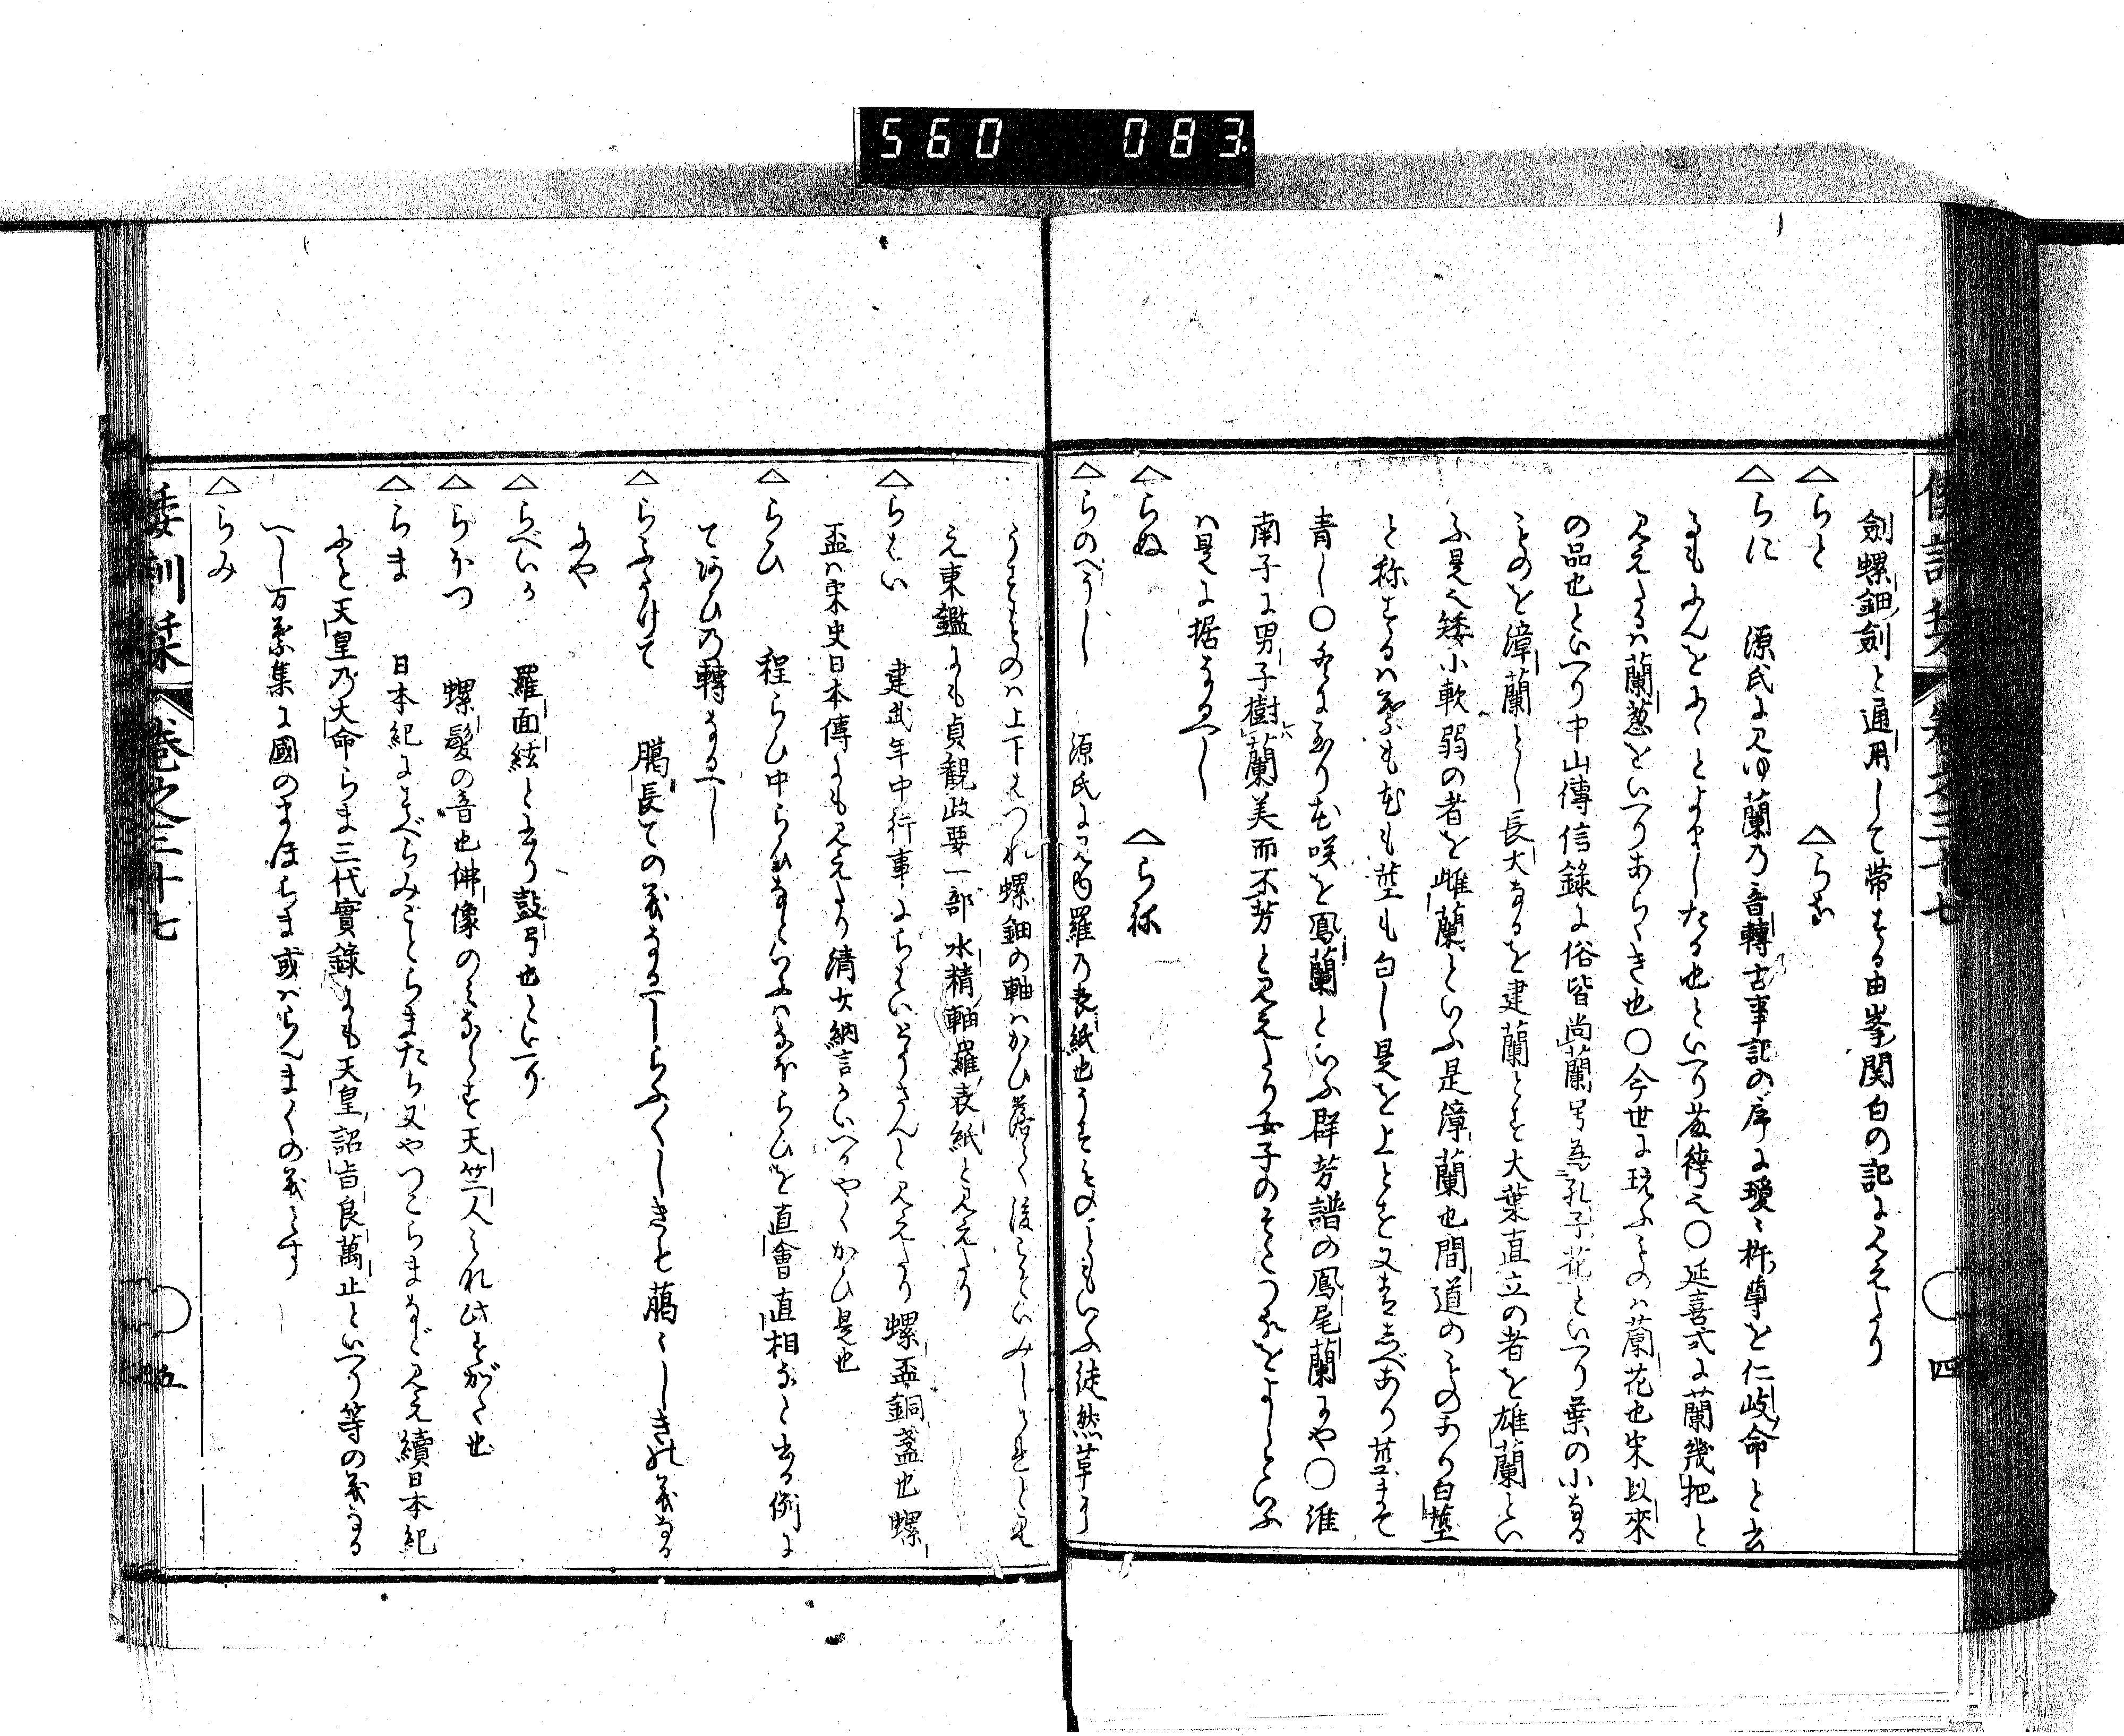 560 083
劍螺鈿劍と通用して帯する由峯関白の記に見えたり
△らと △らな
△らに 源氏に見ゆ蘭の音轉古事記の序に瓊々杵尊を仁岐命と云
るもにんをにゝとよましたる也といへり
見えたるは蘭葱をいへりあらゝき也〇今世に玩ふものは蘭花也宋以來
の品也といへり中山傳信錄に俗皆尚蘭号為孔子花といへり葉の小なる
ものを漳蘭とし長大なるを建蘭とす大葉直立の者を雄蘭とい
ふ是也矮小軟弱の者を雌蘭といふ是漳蘭也間道のものあり白莖
と称するは葉も花も莖も白し是を上とす又
青し〇冬に至り花咲を鳳蘭といふ群芳譜の鳳尾蘭にや〇淮
南子に男子樹レハ蘭美而不芳と見えたり女子のそたつるをよしといふ
は是に据なるへし
△らぬ △らね
△らのへうし 源氏に見ゆ羅の表紙也うすものゝともいふ徒然草に
うすものは上下はつれ螺鈿の軸はかひ落て後こそいみしけれと見
え東鑑にも貞觀政要一部水精軸羅表紙と見えたり
△らはい 建武年中行事にらはいとうさんと見えたり螺盃銅盞也螺
盃は宋史日本傳にも見えたり清少納言かいへるやくかひ是也
△らひ 程らひ中らひなといふはなからひを直會直相なと出る例に
てあひの轉なるへし
△らふたけて 﨟長ての義なるへしらふ〱しきも﨟々しきの義なる
にや
△らべいか 羅面絃と云り鼓弓也といへり
△らほつ 螺髮の音也佛像のみならす天竺人みな此すがた也
△らま 日本紀にすべらみことらまたち又やつこらまなど見え續日本紀
にも天皇乃大命らま三代實錄にも天皇詔旨良萬止といへり等の義なる
へし万葉集に國のまほらま或はらへまくの義とす
△らみ
倭訓栞 卷之三十七 四
倭訓栞 卷之三十七 五